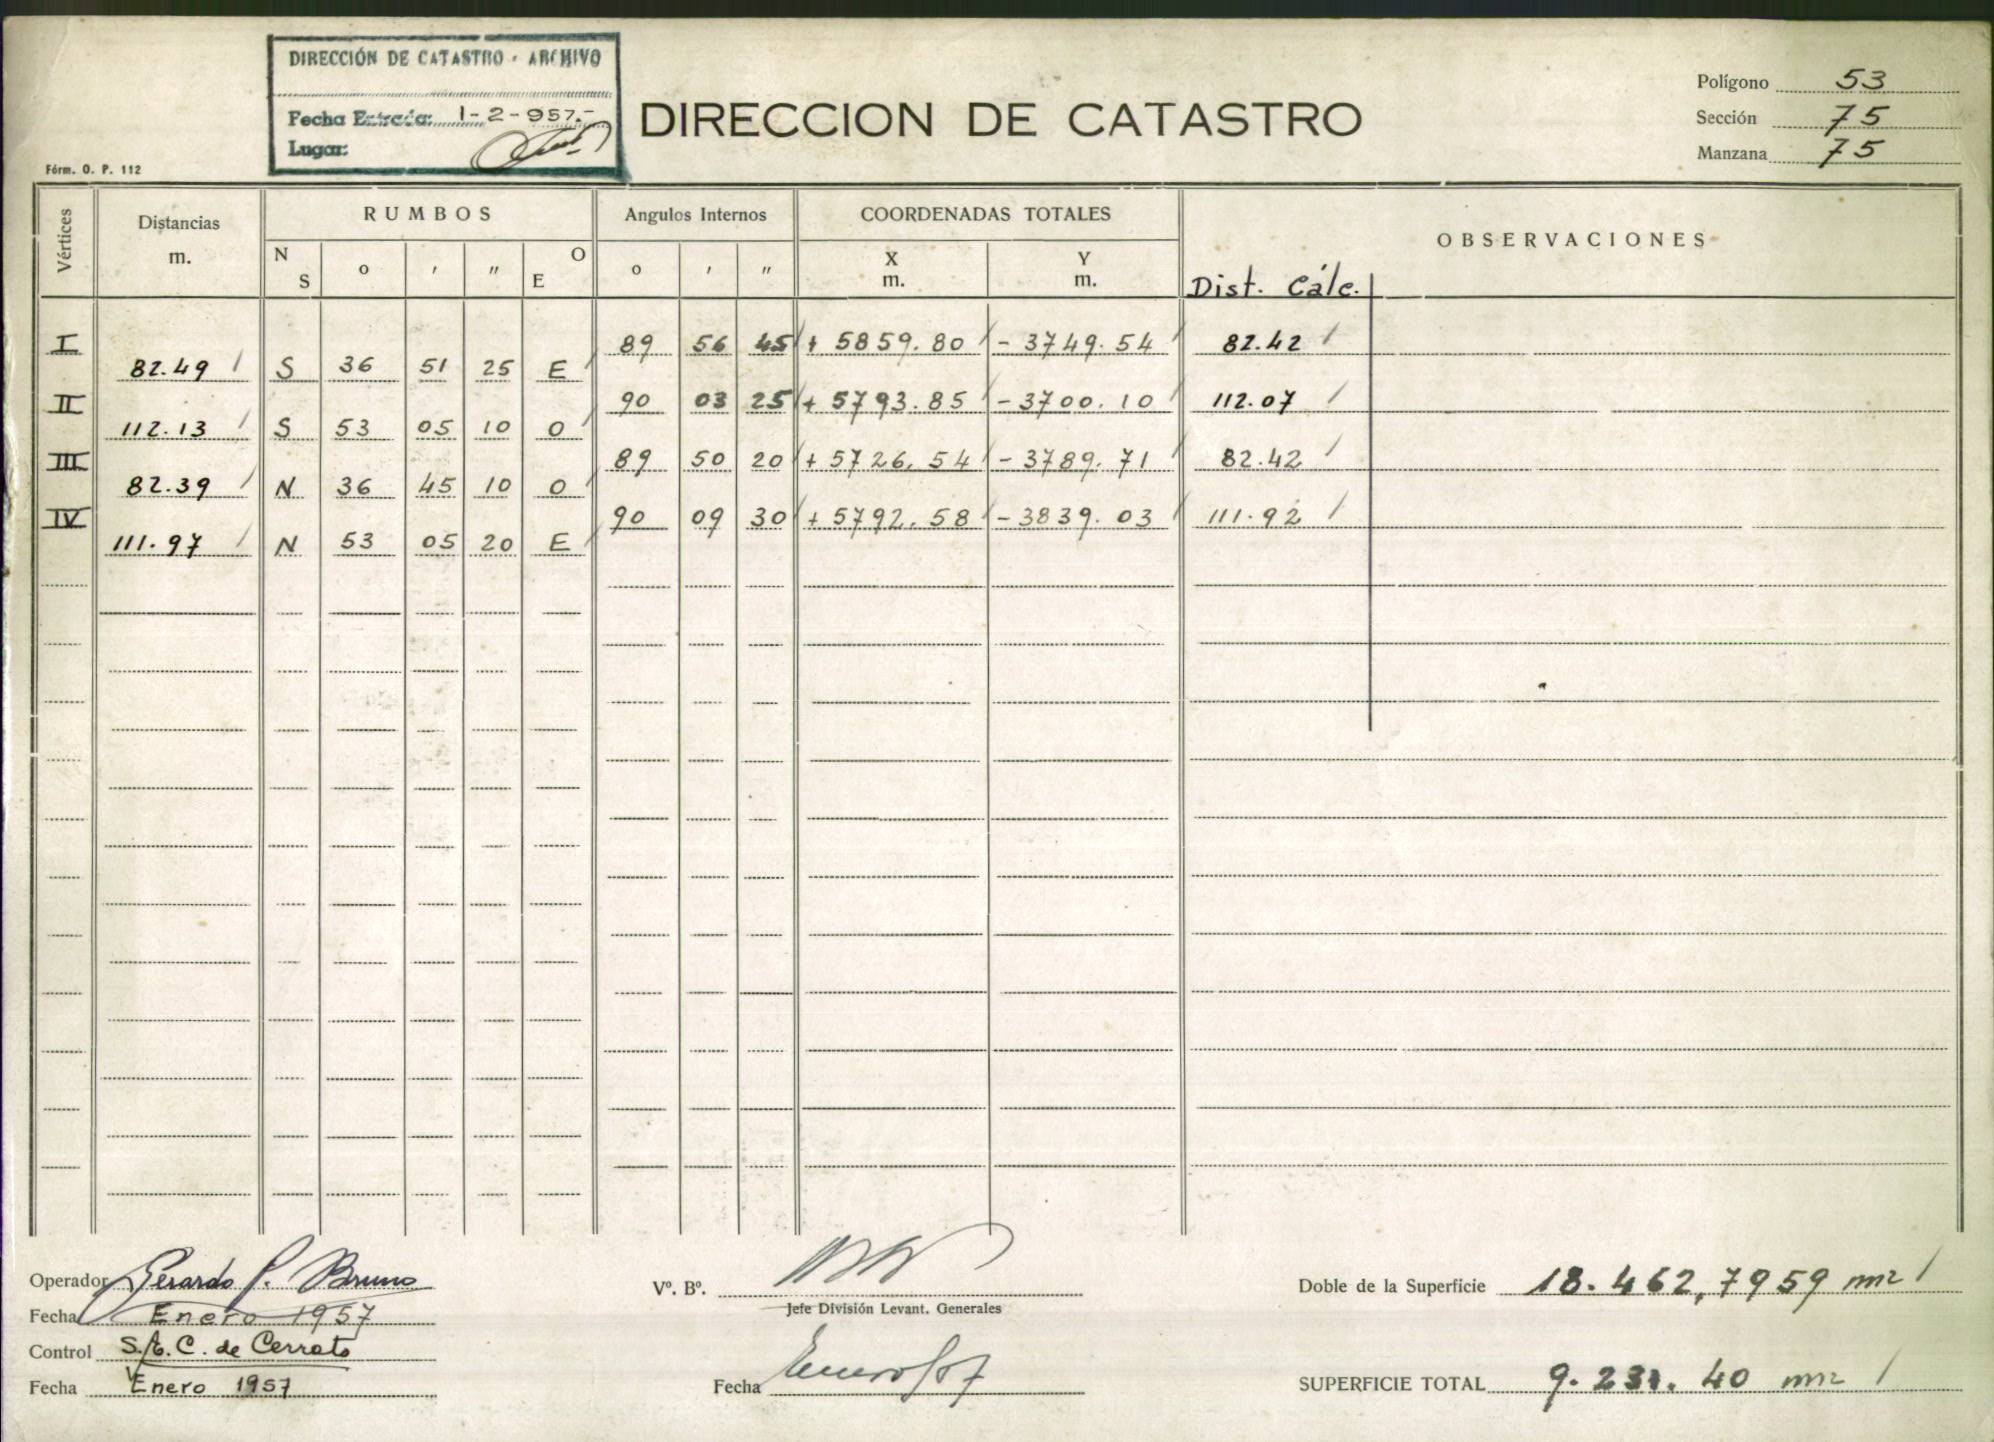 DIRECCIÓN DE CATASTRO - ARCHIVO
Fecha Entrada: 1-2-957.-
Lugar:
DIRECCION DE CATASTRO
Polígono 53
Sección 75
Manzana 75
Fórm. O. P. 112
Vértices
Distancias m.
RUMBOS
N S o ' " O E
Angulos Internos
o ' "
COORDENADAS TOTALES
X m. Y m.
OBSERVACIONES
Dist. Cálc.
I 89 56 45 + 5859.80 - 3749.54 82.42
82.49 S 36 51 25 E
II 90 03 25 + 5793.85 - 3700.10 112.07
112.13 S 53 05 10 O
III 89 50 20 + 5726.54 - 3789.71 82.42
82.39 N 36 45 10 O
IV 90 09 30 + 5792.58 - 3839.03 111.92
111.97 N 53 05 20 E
Operador Gerardo P. Bruno
Fecha Enero 1957
Control S.E.C. de Cerrato
Fecha Enero 1957
Vº. Bº.
Jefe División Levant. Generales
Fecha Enero 957
Doble de la Superficie 18.462,7959 m2
SUPERFICIE TOTAL 9.231.40 m2